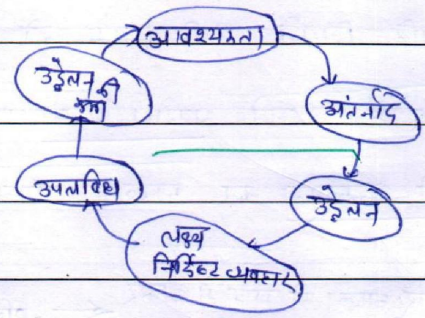 आवश्यकता
अंतर्नाद
उद्वेलन
लक्ष्य
निर्दिष्ट व्यवहार
उपलब्धि
उद्वेलन
की
कमी